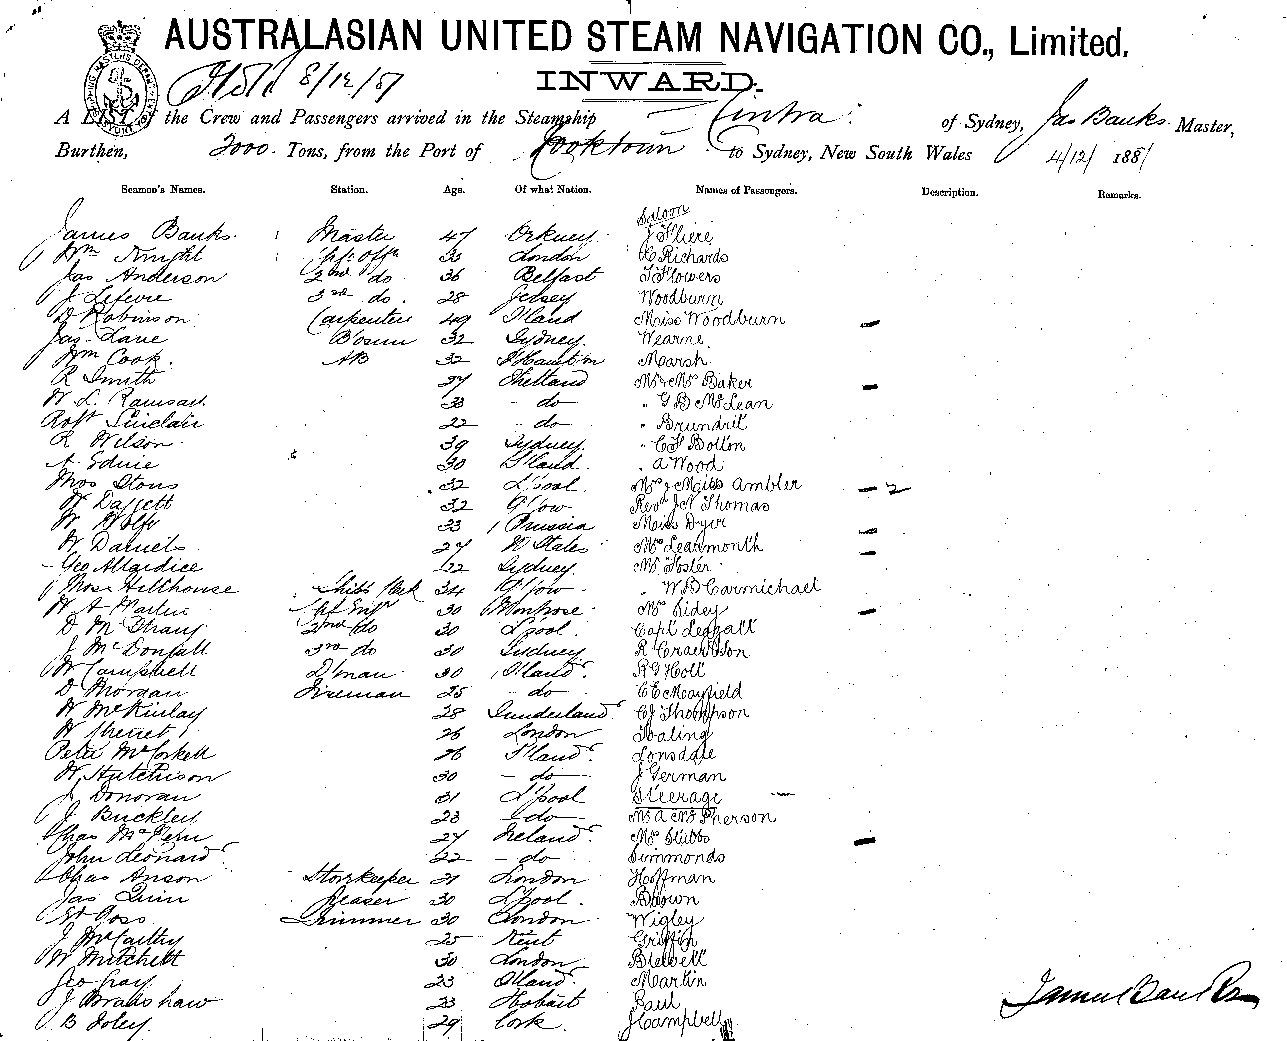 AUSTRALASIAN UNITED STEAM NAVIGATION CO., Limited.
8/12/87
INWARD.
A LIST of the Crew and Passengers arrived in the Steamship Cintra of Sydney, Jas Banks Master,
Burthen, 2000 Tons, from the Port of Cooktown to Sydney, New South Wales 4/12/ 188
Seamen's Names. Station. Age. Of what Nation. Names of Passengers. Description. Remarks.
Saloon
James Banks Master 47 Orkney
Wm Knight 33 London Richards
Jas Anderson 2nd do 36 Belfast Flowers
J Lefevre 3rd do 28 Jersey Woodburn
D Robinson Carpenter 49 S'land Miss Woodburn
Jas Lane B'osun 32 Sydney Wearne
Wm Cook AB 32 Marsh
R Smith 27 Shetland Mr & Mrs Baker
W L Ramsay 33 do " G B McLean
Robt Sinclair 22 do " Brundrit
R Wilson 39 Sydney " C F Bolton
A Edine 30 S'land " A Wood
Mos Stous 32 L'pool Mrs & Miss Ambler 2
W Daggett 32 G'ow Revd J N Thomas
W Wolfe 33 Prussia Miss Dyer
W Daniels 27 U States Mrs Learmonth
Geo Allardice 22 Sydney Mr Foster
Thos Hillhouse 34 G'ow " W B Carmichael
W A Martin 30 Montrose Mrs Sidey
D M Shang 2nd do 30 L'pool Capt Leggatt
J McDonall 3rd do 30 Sydney R
W Campbell D'man 30 S'land R G Holt
D Morgan Fireman 25 do C E Mayfield
W McKinlay 28 Sunderland C J Thompson
W 26 London
Peter McCorkell 26 S'land Lonsdale
W Hutchison 30 do J German
J Donovan 31 L'pool Steerage
J Buckley 23 do Mr A McPherson
Chas 27 Ireland Mrs Stubbs
John Leonard 22 do Simmonds
Chas Anson Storekeeper 21 London Hoffman
Jas Quinn Greaser 30 L'pool Brown
Ed Goss Trimmer 30 London Wigley
J McCarthy 25 Kent Griffin
W Mitchell 30 London Blewett
Geo Gray 23 S'land Martin
J Bradshaw 23 Hobart Paul
B Foley 29 Cork J Campbell
James Banks